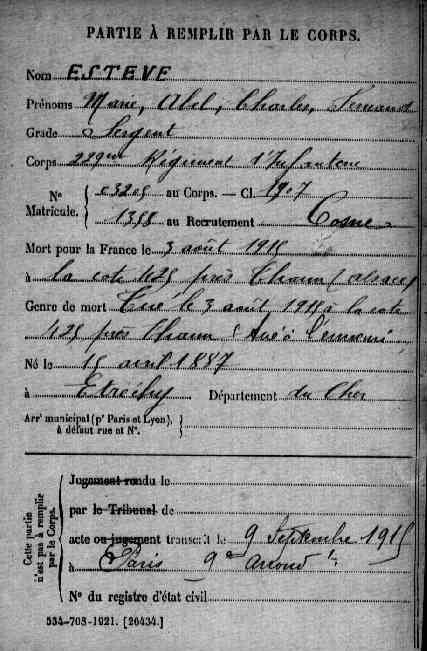 PARTIE À REMPLIR PAR LE CORPS.
Nom ESTÈVE
Prénoms Marie, Abel, Charles, Fernand
Grade Sergent
Corps 229me Régiment d'Infanterie
N° Matricule. { 03205 au Corps. — Cl. 1907
1388 au Recrutement Cosne
Mort pour la France le 3 août 1915
à la cote 425 près Thann (Alsace)
Genre de mort Tué le 3 août 1915 à la cote
425 près Thann (Tué à l'ennemi
Né le 15 avril 1887
à Etréchy Département du Cher
Arrt municipal (pr Paris et Lyon),
à défaut rue et N°. }
Cette partie n'est pas à remplir par le Corps.
Jugement rendu le
par le Tribunal de
acte ou jugement transcrit le 9 Septembre 1915
à Paris 9e Arrondt
N° du registre d'état civil
534-708-1921. [26434.]